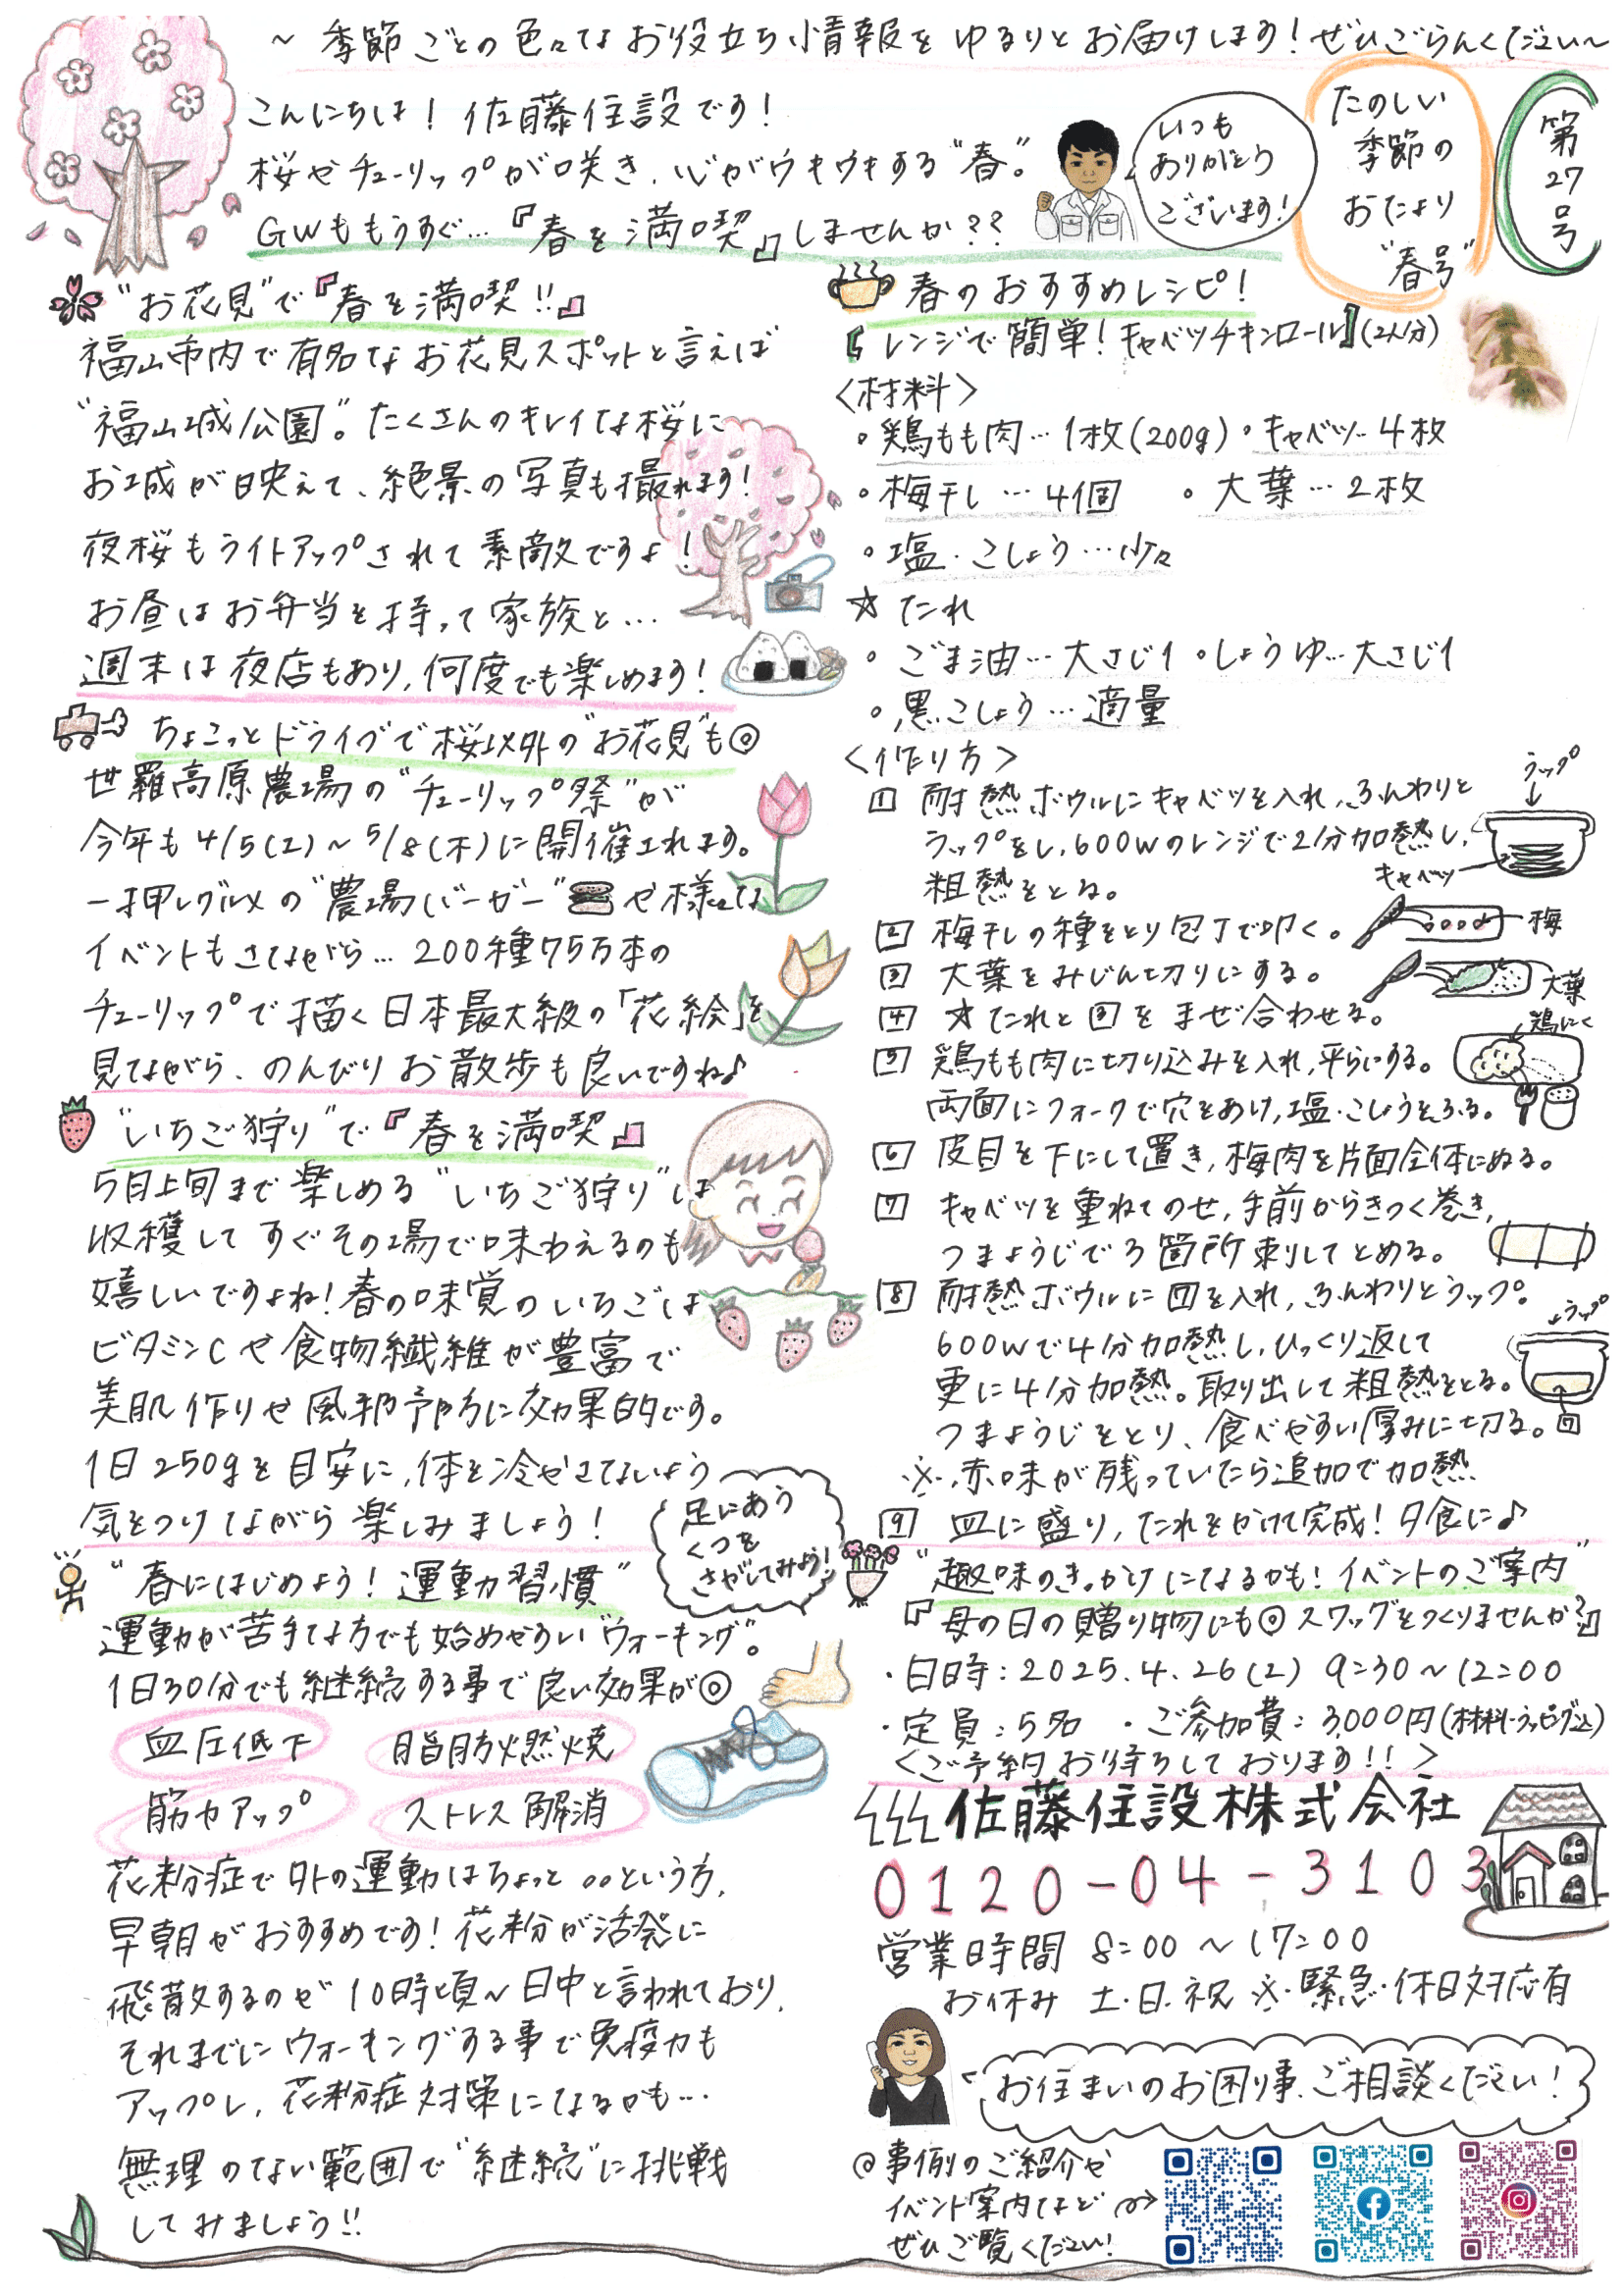 ～季節ごとの色々なお役立ち情報をゆるりとお届けします！ぜひごらんください～
第27号
たのしい
季節の
おたより
“春号”
こんにちは！佐藤住設です！
桜やチューリップが咲き、心がウキウキする“春”。
GWももうすぐ…『春を満喫』しませんか??
いつも
ありがとう
ございます！
“お花見”で『春を満喫!!』
福山市内で有名なお花見スポットと言えば
“福山城公園”。たくさんのキレイな桜に
お城が映えて、絶景の写真も撮れます！
夜桜もライトアップされて素敵ですよ！
お昼はお弁当を持って家族と…
週末は夜店もあり、何度でも楽しめます！
ちょこっとドライブで桜以外の“お花見”も◎
世羅高原農場の“チューリップ祭”が
今年も4/5(土)～5/8(木)に開催されます。
一押しグルメの“農場バーガー”や様々な
イベントもさながら…200種75万本の
チューリップで描く日本最大級の「花絵」を
見ながら、のんびりお散歩も良いですね♪
“いちご狩り”で『春を満喫』
5月上旬まで楽しめる“いちご狩り”は
収穫してすぐその場で味わえるのも
嬉しいですよね！春の味覚のいちごは
ビタミンCや食物繊維が豊富で
美肌作りや風邪予防に効果的です。
1日250gを目安に、体を冷やさないよう
気をつけながら楽しみましょう！
“春にはじめよう！運動習慣”
足にあう
くつを
さがしてみよう！
運動が苦手な方でも始めやすい“ウォーキング”。
1日30分でも継続する事で良い効果が◎
血圧低下 脂肪燃焼
筋力アップ ストレス解消
花粉症で外の運動はちょっと。。という方、
早朝がおすすめです！花粉が活発に
飛散するのが10時頃～日中と言われており、
それまでにウォーキングする事で免疫力も
アップし、花粉症対策になるかも…
無理のない範囲で“継続”に挑戦
してみましょう!!
春のおすすめレシピ！
【レンジで簡単！キャベツチキンロール】(2人分)
〈材料〉
・鶏もも肉…1枚(200g)・キャベツ…4枚
・梅干し…4個 ・大葉…2枚
・塩・こしょう…少々
☆たれ
・ごま油…大さじ1 ・しょうゆ…大さじ1
・黒こしょう…適量
〈作り方〉
1 耐熱ボウルにキャベツを入れ、ふんわりと
ラップをし、600Wのレンジで2分加熱し、
粗熱をとる。
ラップ
キャベツ
2 梅干しの種をとり包丁で叩く。
梅
3 大葉をみじん切りにする。
大葉
4 ☆たれと3をまぜ合わせる。
鶏にく
5 鶏もも肉に切り込みを入れ、平らにする。
両面にフォークで穴をあけ、塩・こしょうをふる。
6 皮目を下にして置き、梅肉を片面全体にぬる。
7 キャベツを重ねてのせ、手前からきつく巻き、
つまようじで3箇所刺してとめる。
8 耐熱ボウルに7を入れ、ふんわりとラップ。
600Wで4分加熱し、ひっくり返して
更に4分加熱。取り出して粗熱をとる。
つまようじをとり、食べやすい厚みに切る。
ラップ
7
※赤味が残っていたら追加で加熱
9 皿に盛り、たれをかけて完成！夕食に♪
“趣味のきっかけになるかも！イベントのご案内”
『母の日の贈り物にも◎スワッグをつくりませんか？』
・日時：2025.4.26(土) 9:30～12:00
・定員：5名 ・ご参加費：3,000円(材料・ラッピング込)
〈ご予約お待ちしております!!〉
佐藤住設株式会社
0120-04-3103
営業時間 8:00～17:00
お休み 土・日・祝 ※緊急・休日対応有
お住まいのお困り事、ご相談ください！
@事例のご紹介や
イベント案内など
ぜひご覧ください！